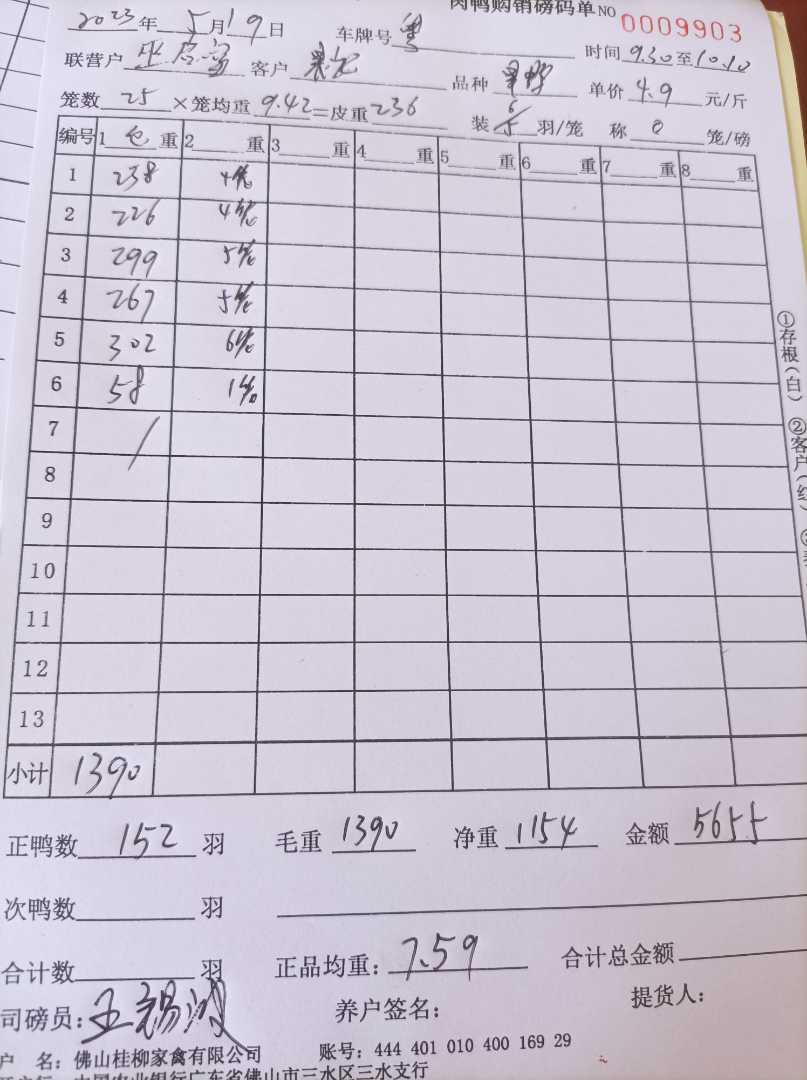 肉鸭购销磅码单 NO 0009903
2023年5月19日 车牌号 粤
联营户 客户 品种 单价 4.9 元/斤 时间 9.30 至 10.10
笼数 25 ×笼均重 9.42 =皮重 236 装 6 羽/笼 称 0 笼/磅
编号 1 重 2 重 3 重 4 重 5 重 6 重 7 重 8 重
1 238
2 226
3 299
4 267
5 302
6 58
7
8
9
10
11
12
13
小计 1390
正鸭数 152 羽 毛重 1390 净重 1154 金额 5655
次鸭数 羽
合计数 羽 正品均重: 7.59 合计总金额
司磅员: 王锡 养户签名: 提货人:
户 名: 佛山桂柳家禽有限公司 账号: 444 401 010 400 169 29
中国农业银行广东省佛山市三水区三水支行
①存根(白) ②客户(红)